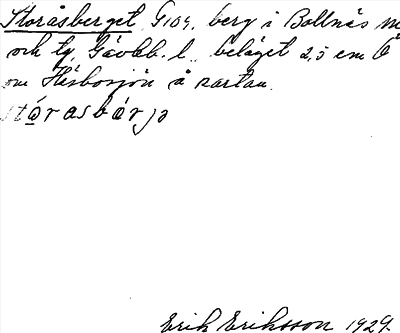 Storåsberget, G104, berg i Bollnäs sn
och tg, Gävleb. l., beläget 2,5 cm Ö
om Hisbosjön å kartan.
stórasbærjə
Erik Eriksson 1929.